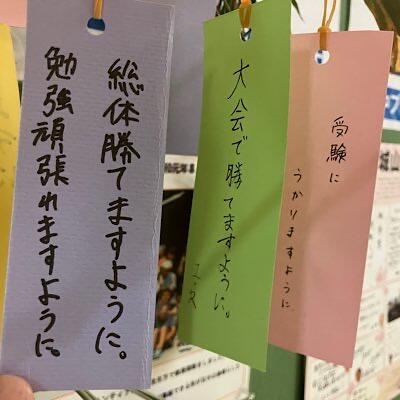 総体勝てますように。
勉強頑張れますように。
大会で勝てますように。
受験に
うかりますように